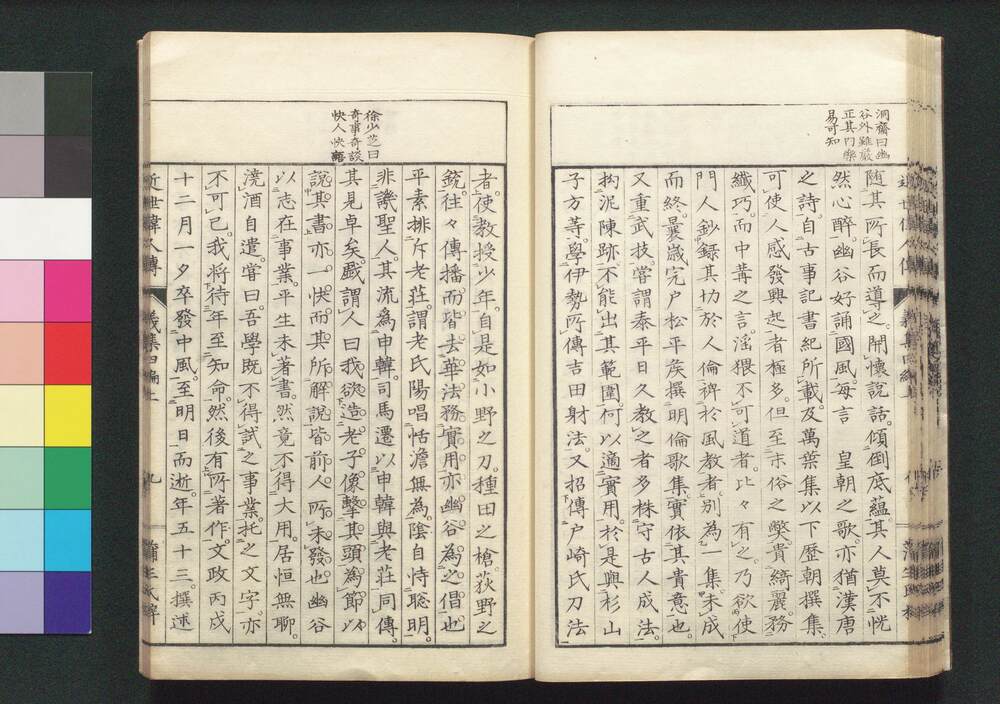 洞齋曰幽
谷外雖嚴
正其門樂
易可知
随其所長而導之開懷說話傾倒底蘊其人莫不恍
然心醉幽谷好誦國風每言　皇朝之歌亦猶漢唐
之詩自古事記書紀所載及萬葉集以下歷朝撰集
可使人感發興起者極多但至末俗之獘貴綺麗務
纖巧而中冓之言淫猥不可道者比々有之乃欲使
門人鈔錄其切於人倫裨於風教者別為一集未成
而終曩嵗完戶松平矦撰明倫歌集實依其貴意也
又重武技嘗謂泰平日久教之者多株守古人成法
拘泥陳跡不能出其範圍何以適實用於是與杉山
子方等學伊勢所傳吉田射法又招傳戶崎氏刀法
徐少芝曰
奇事奇談
快人快語
者使教授少年自是如小野之刀種田之槍荻野之
銃往々傳播而皆去華法務實用亦幽谷為之倡也
平素排斥老莊謂老氏陽唱恬澹無為陰自恃聡明
非譏聖人其流為申韓司馬遷以申韓與老莊同傳
其見卓矣戲謂人曰我欲造老子像擊其頭為節以
說其書亦一快而其所解說皆前人所未發也幽谷
以志在事業平生未著書然竟不得大用居恒無聊
澆酒自遣嘗曰吾學既不得試之事業托之文字亦
不可已我將待年至知命然後有所著作文政丙戍
十二月一夕卒發中風至明日而逝年五十三撰述
近世偉人傳　義集四編上　九　蒲生氏梓